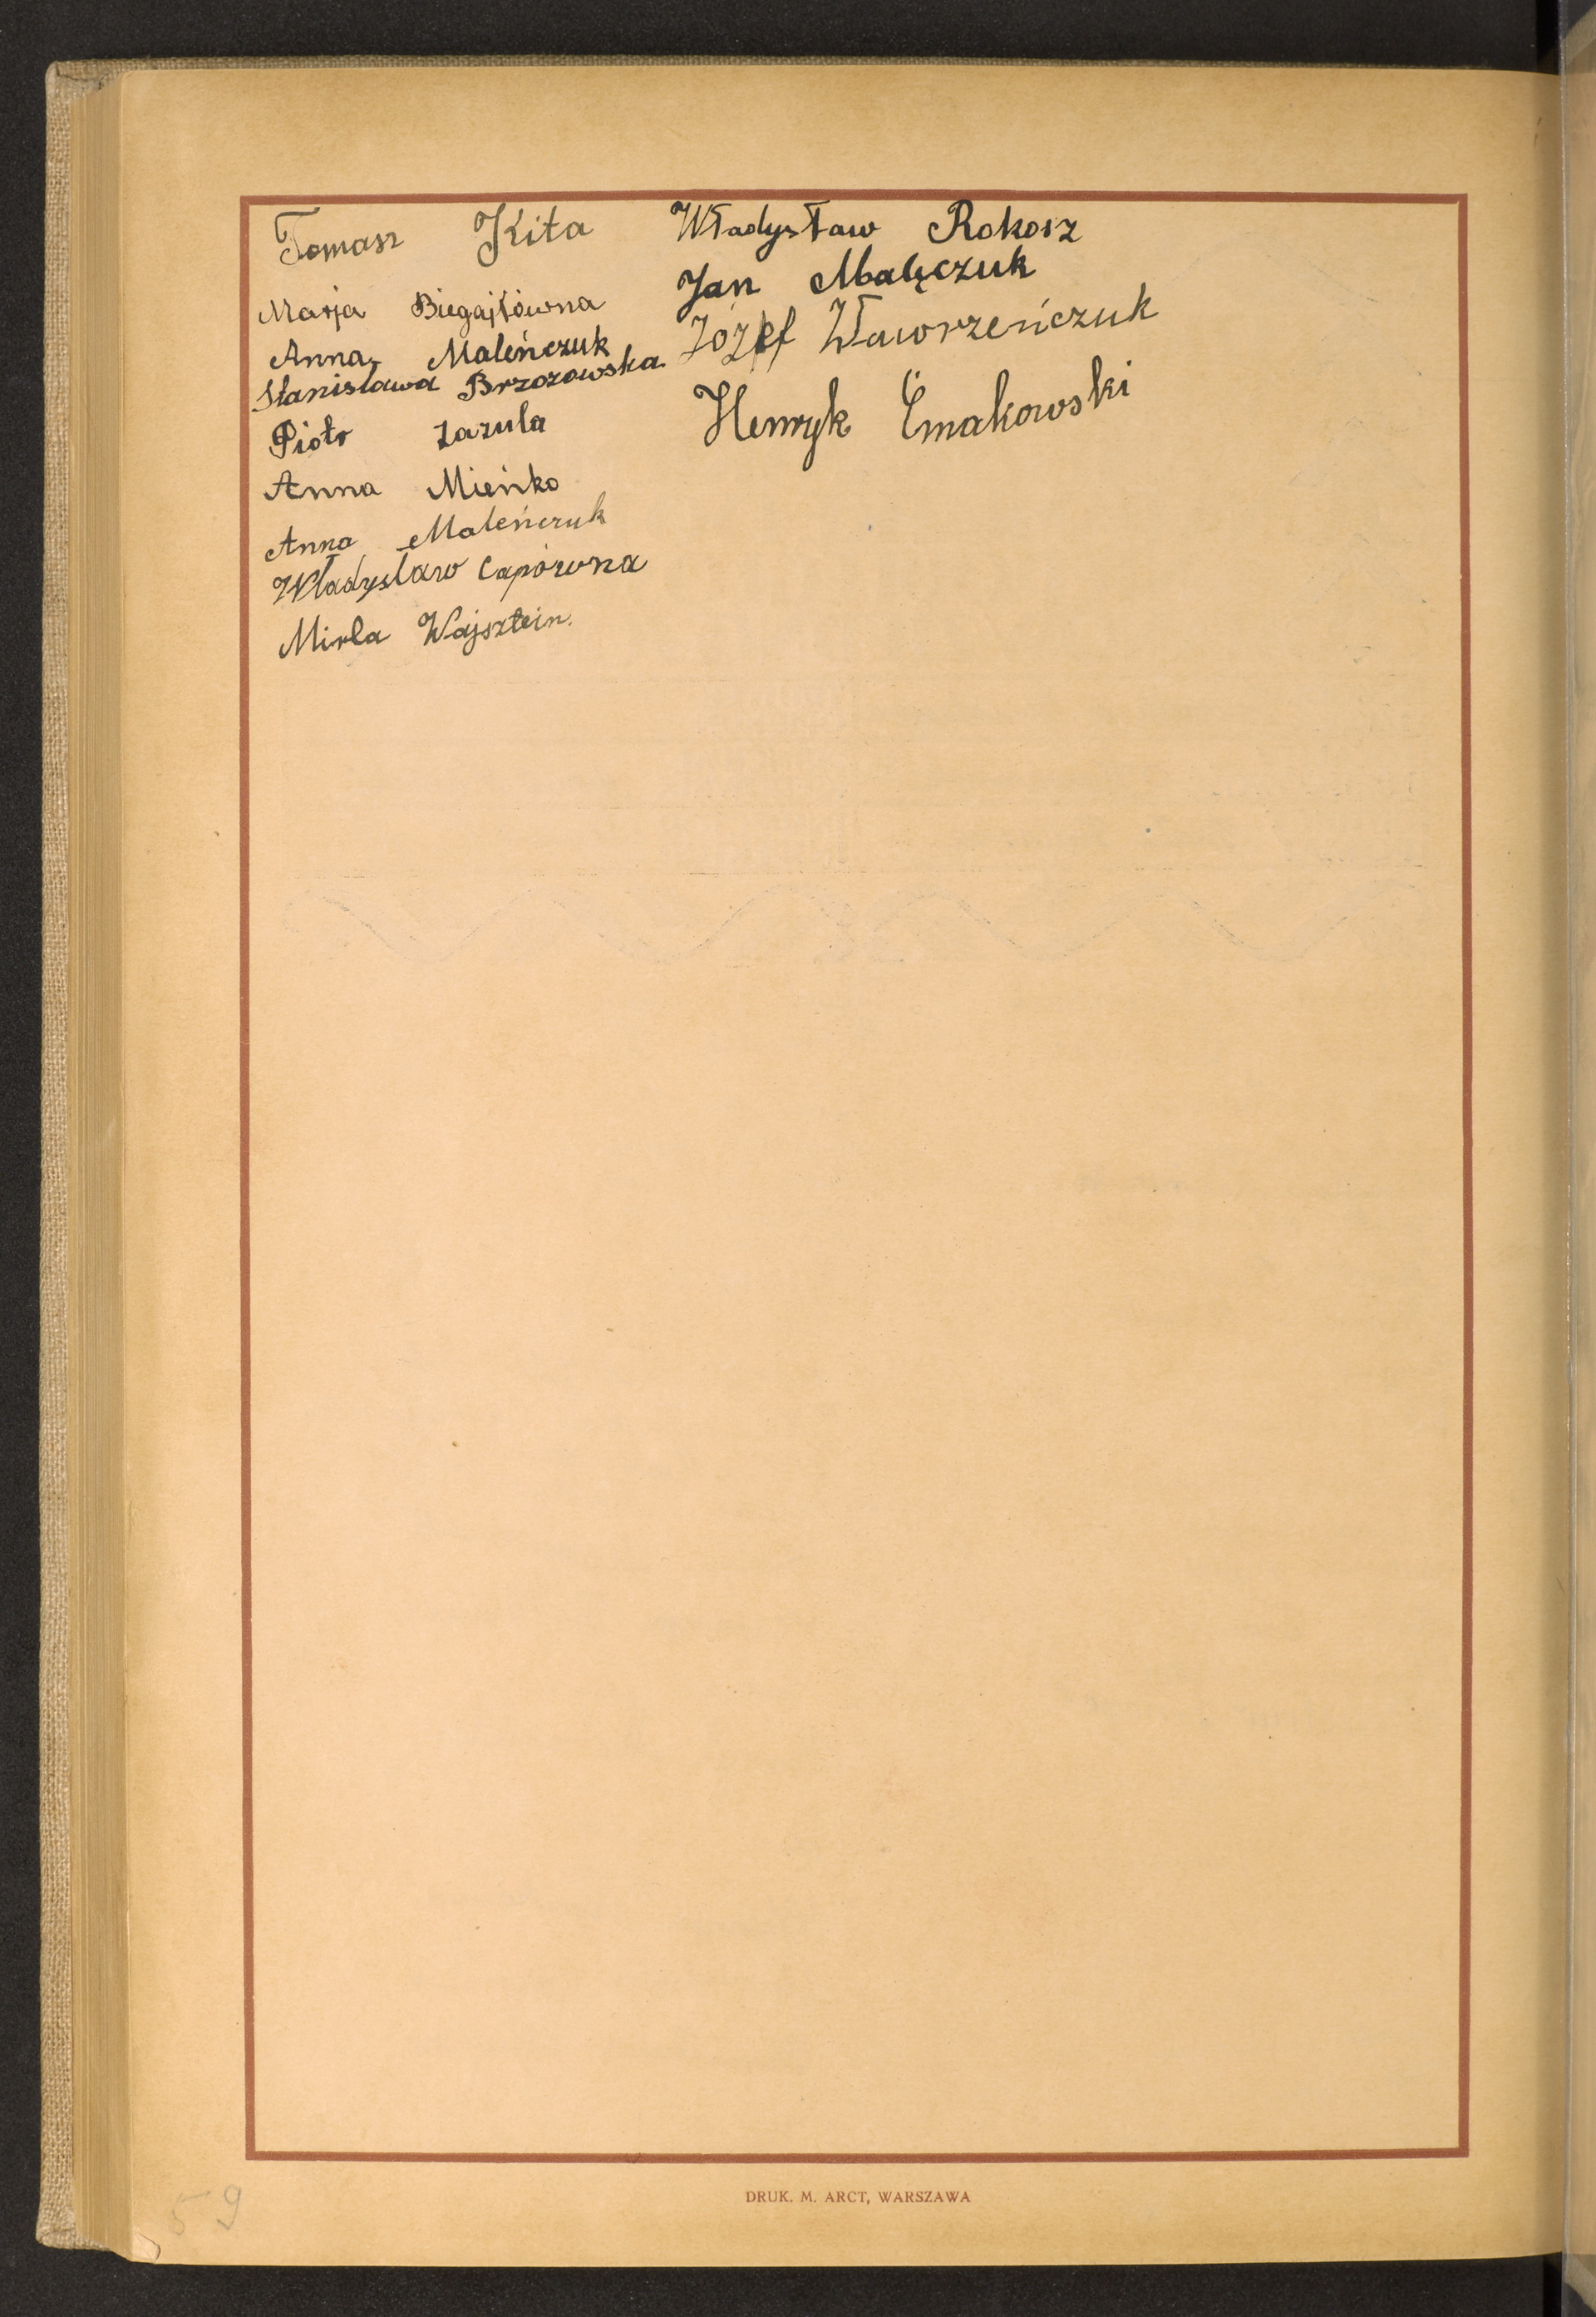 Tomasz Kita
Marja Biegajłówna
Anna Maleńczuk
Stanisława Brzozowska
Piotr Zazula
Anna Mieńko
Anna Maleńczuk
Władysław Capówna
Mirla Wajsztein.
Władysław Rokosz
Jan Malęczuk
Józef Wawrzeńczuk
Henryk Ćmakowski
DRUK. M. ARCT, WARSZAWA
59